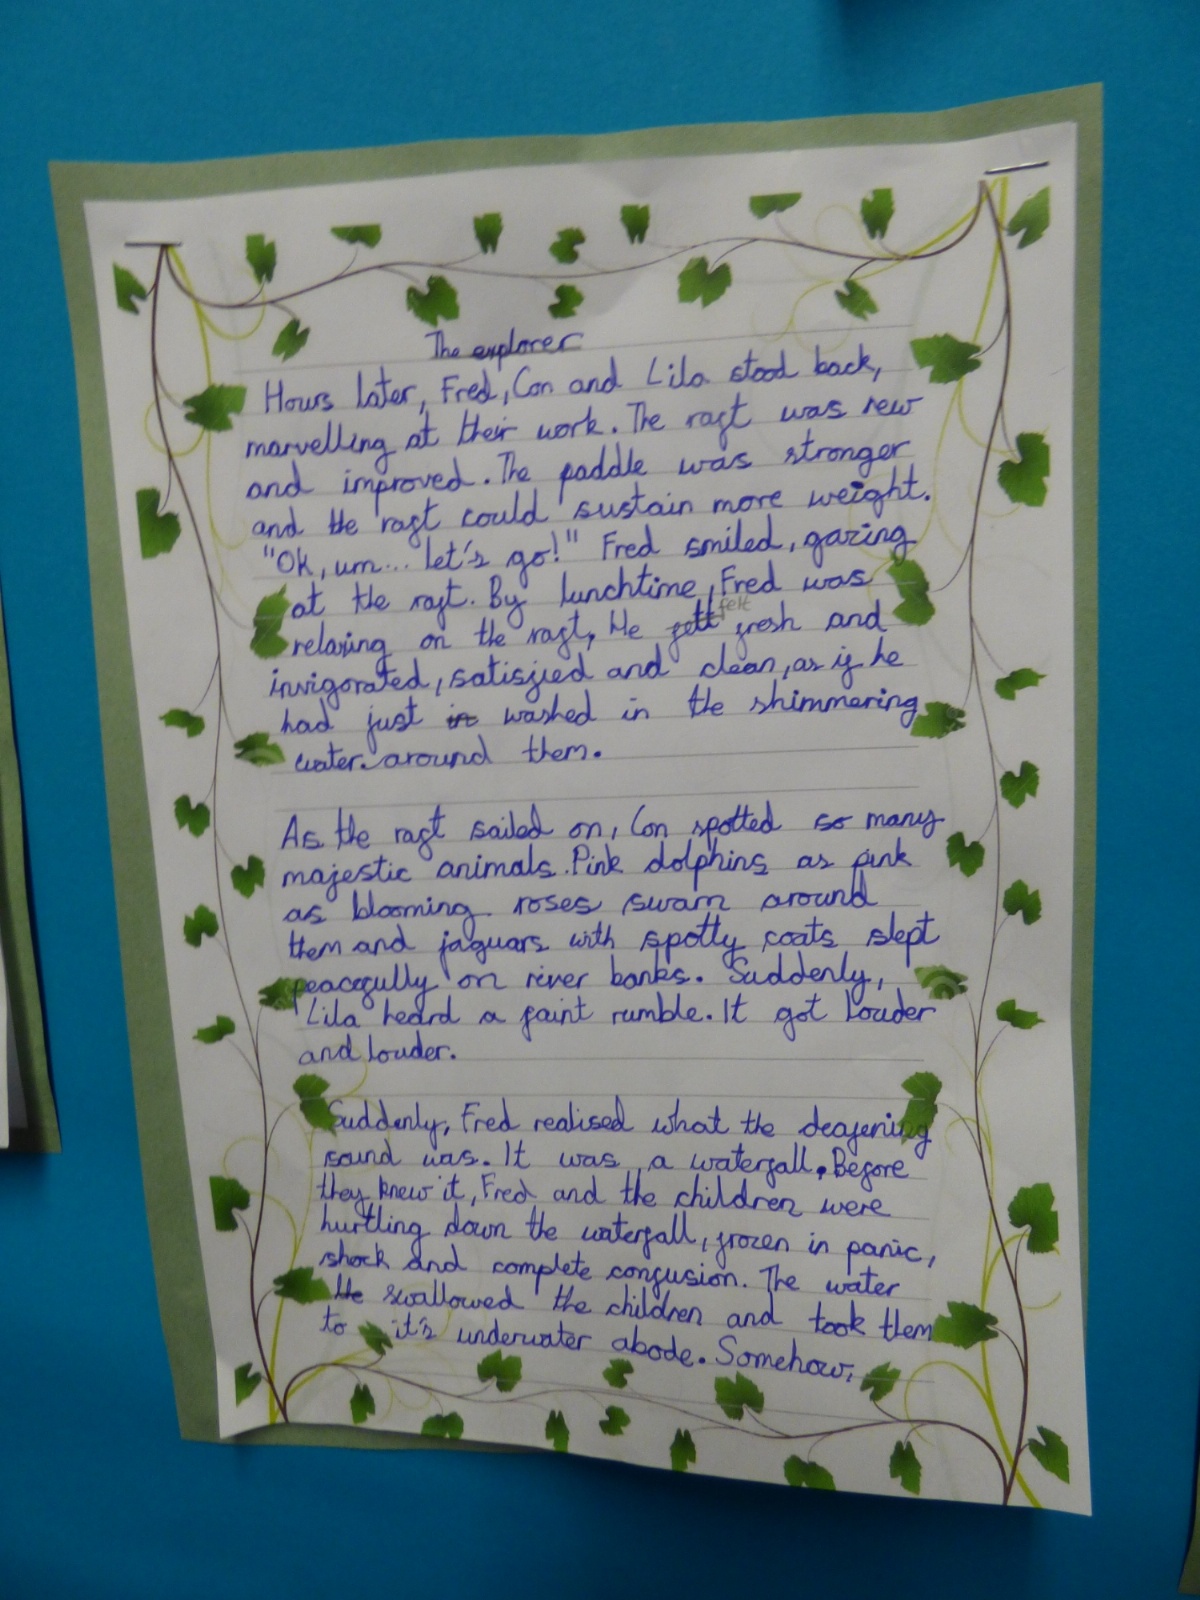 The explorer
Hours later, Fred, Con and Lila stood back,
marvelling at their work. The raft was new
and improved. The paddle was stronger
and the raft could sustain more weight.
"Ok, um... let's go!" Fred smiled, gazing
at the raft. By lunchtime, Fred was
relaxing on the raft, He felt felt fresh and
invigorated, satisfied and clean, as if he
had just in washed in the shimmering
water around them.
As the raft sailed on, Con spotted so many
majestic animals. Pink dolphins as pink
as blooming roses swam around
them and jaguars with spotty coats slept
peacefully on river banks. Suddenly,
Lila heard a faint rumble. It got louder
and louder.
Suddenly, Fred realised what the deafening
sound was. It was a waterfall. Before
they knew it, Fred and the children were
hurtling down the waterfall, frozen in panic,
shock and complete confusion. The water
He swallowed the children and took them
to it's underwater abode. Somehow,